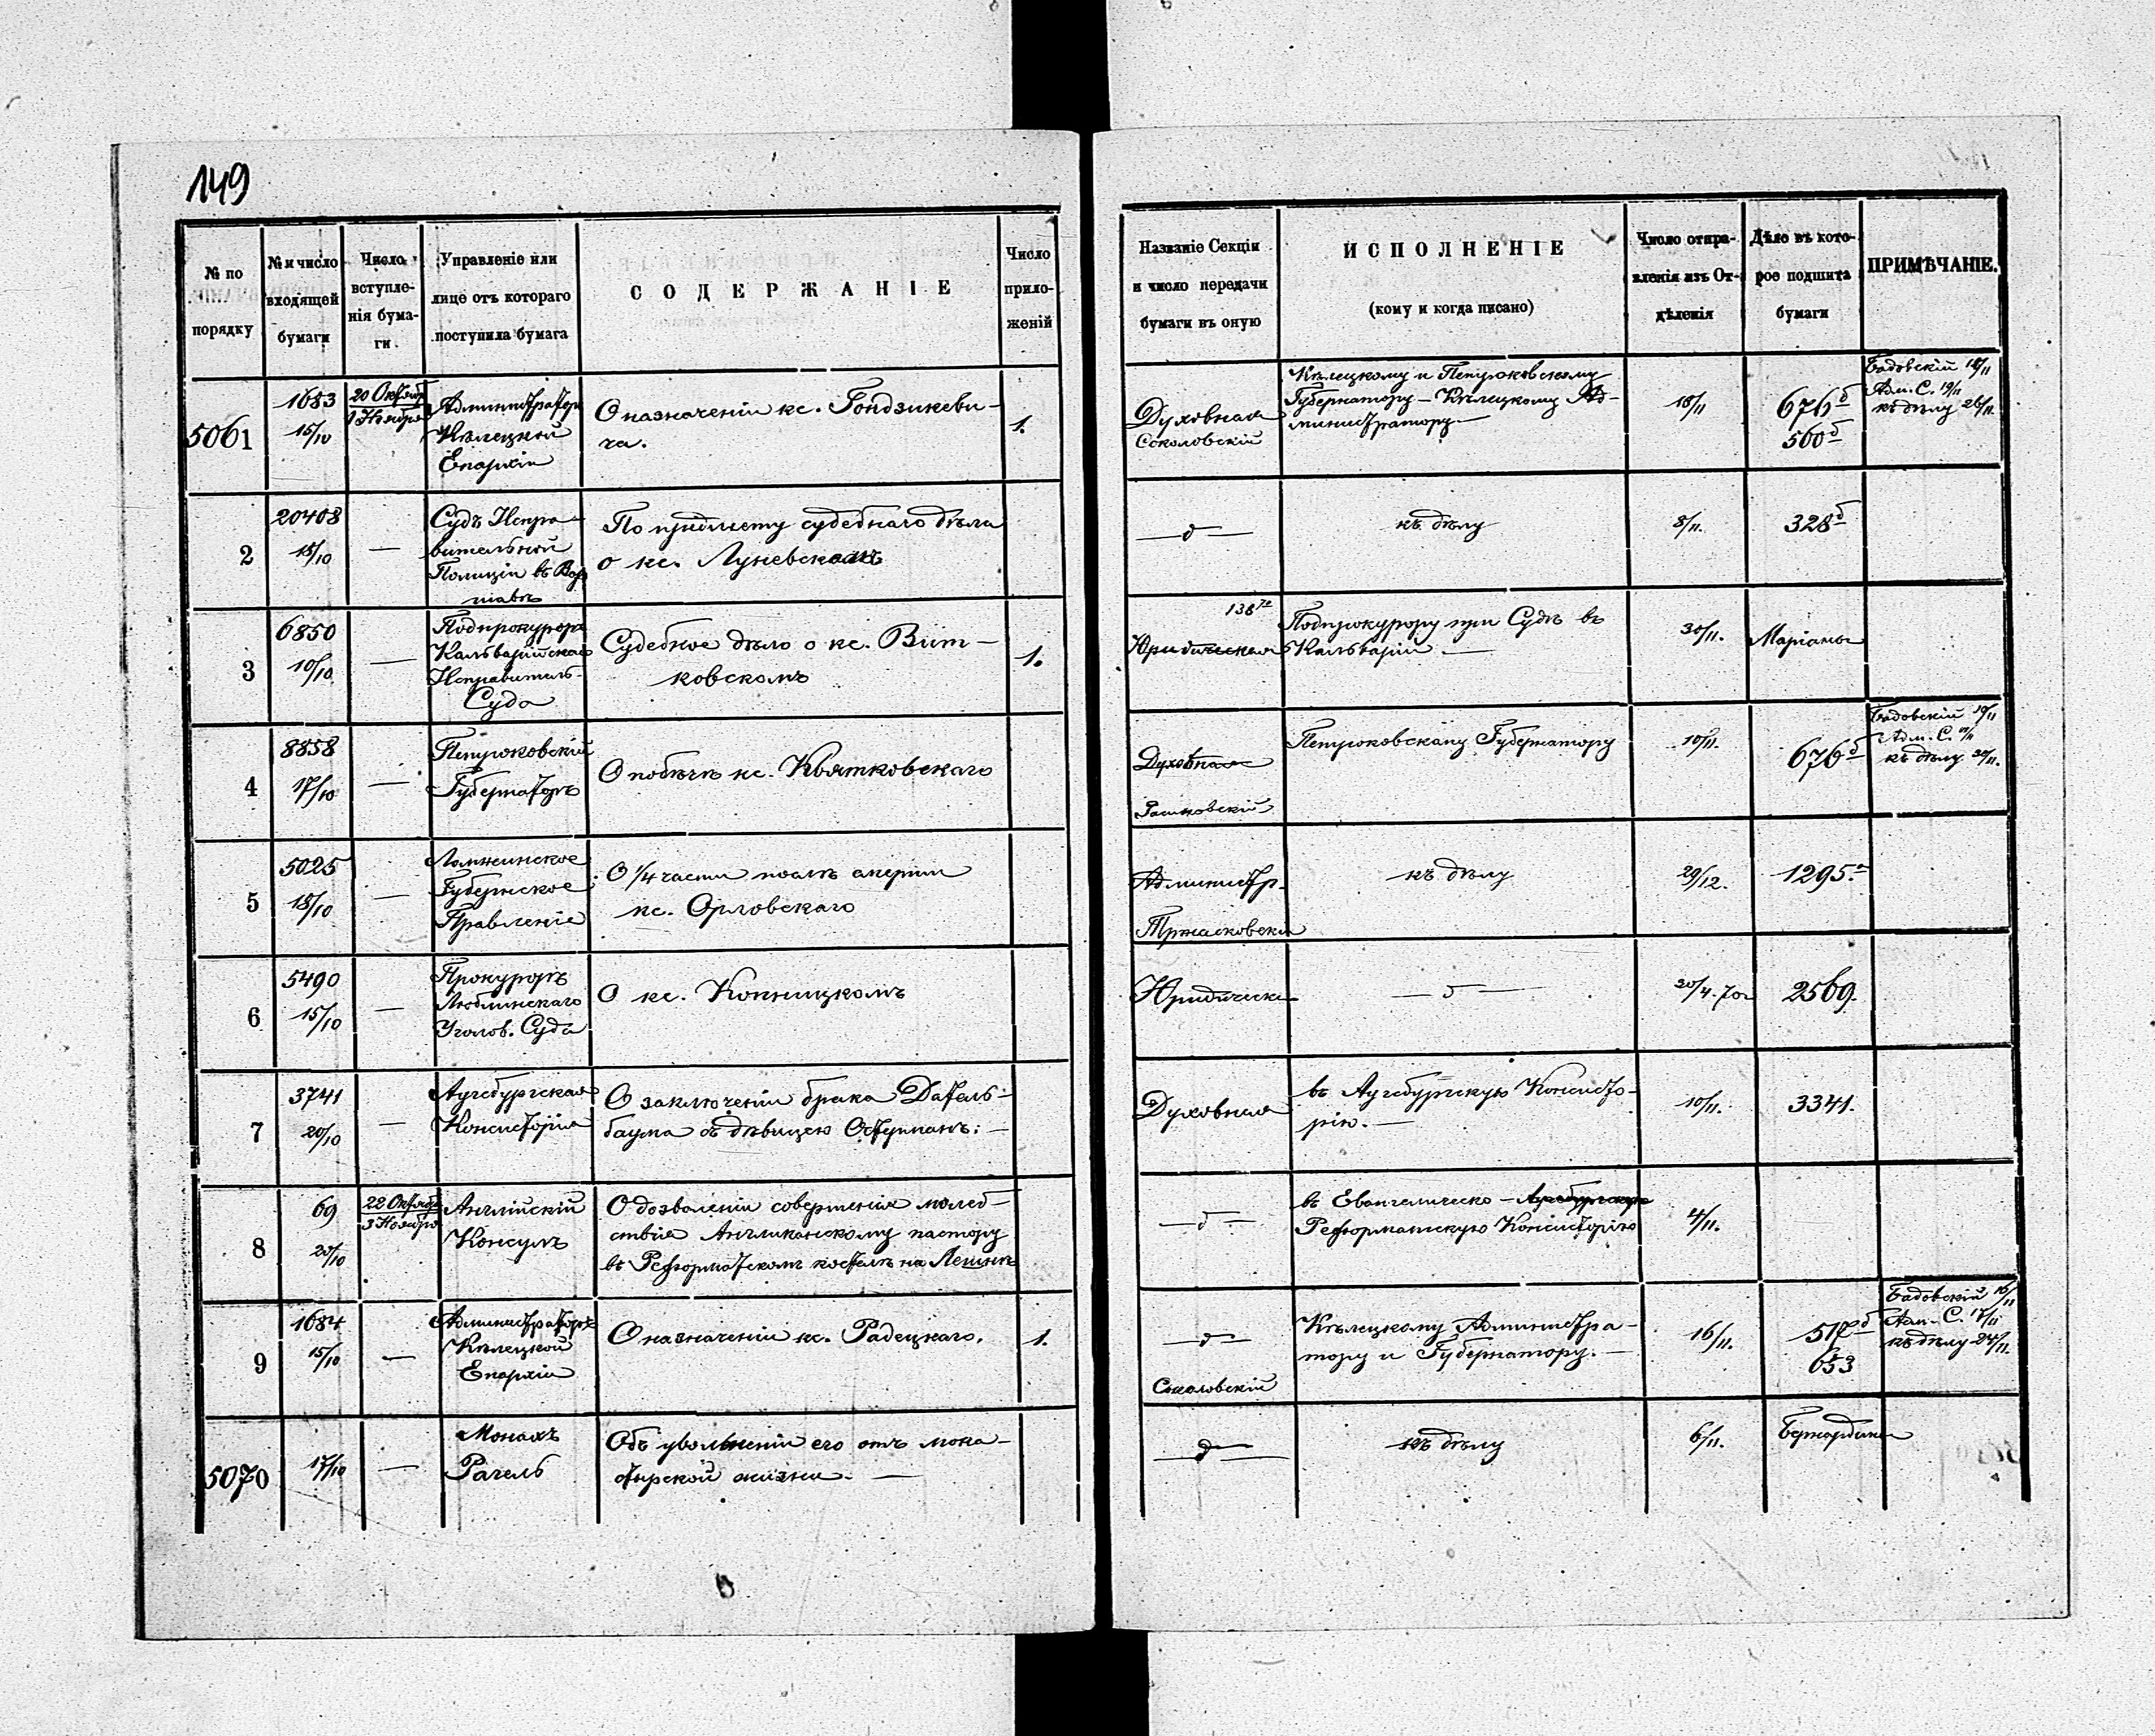 149
№ по
порядку
№ и число
входящей
бумаги
Число
вступле-
нія бума-
ги.
Управленіе или
лице отъ котораго
поступила бумага
СОДЕРЖАНІЕ
Число
прило-
женій
Названіе Секціи
и число передачи
бумаги въ оную
ИСПОЛНЕНІЕ
(кому и когда писано)
Число отпра-
вленія изъ От-
дѣленія
Дѣло въ кото-
рое подшита
бумаги
ПРИМѢЧАНІЕ.
5061
1683
15/10
20 Октября
1 Ноября
Администраторъ
Кѣлецкой
Епархіи
О назначеніи кс. Гондзикеви-
ча.
1.
Духовная
Соколовскій
Кѣлецкому и Петроковскому
Губернатору — Кѣлецкому Ад-
министратору —
18/11
676б
560б
Бадовскій 18/11
Адм. С. 19/11
къ дѣлу 26/11.
2
20408
18/10
—
Судъ Испра-
вительной
Полиціи въ Вар
шавѣ
По предмету судебнаго дѣла
о кс. Луневскомъ
— д —
къ дѣлу
8/11.
328б
3
6850
10/10
—
Подпрокуроръ
Кальварійскаго
Исправитель-
Суда
Судебное дѣло о кс. Вит-
ковскомъ
1.
138
Юридическая
Подпрокурору при Судѣ въ
Кальваріи. —
30/11.
Маріаны
4
8858
17/10
—
Петроковскій
Губернаторъ
О побѣгѣ кс. Квятковскаго
Духовная
Петроковскому Губернатору
10/11.
676б
Бадовскій 19/11
Адм. С.
къ дѣлу 30/11.
5
5025
18/10
—
Ломжинское
Губернское
Правленіе
О 1/4 части послѣ смерти
кс. Орловскаго
Администр.
къ дѣлу
29/12.
1295.а
6
5490
15/10
—
Прокуроръ
Люблинскаго
Уголов. Суда
О кс. Копницкомъ
Юридическ
— д —
20/4.70г
2569.
7
3741
20/10
—
Аугсбургская
Консисторія
О заключеніи брака Датель-
баума съ дѣвицею Остурманъ: —
Духовная
въ Аугсбургскую Консисто-
рію. —
10/11.
3341.
8
69
20/10
22 Октября
3 Ноября
Англійскій
Консулъ
О дозволеніи совершенія молеб-
ствія Англиканскому пастору
въ Реформатскомъ костелѣ на Лешнѣ
— д —
въ Евангелическо — Аугсбургскую
Реформатскую Консисторію
4/11.
9
1684
15/10
—
Администраторъ
Кѣлецкой
Епархіи
О назначеніи кс. Радецкаго.
1.
— д —
Соколовскій
Кѣлецкому Администра-
тору и Губернатору. —
16/11.
517б
653
Бадовскій 16/11
Адм. С. 17/11
къ дѣлу 24/11.
5070
17/10
—
Монахъ
Рагель
Объ увольненіи его отъ мона-
стырской жизни. —
— д —
къ дѣлу
6/11.
Бернардины